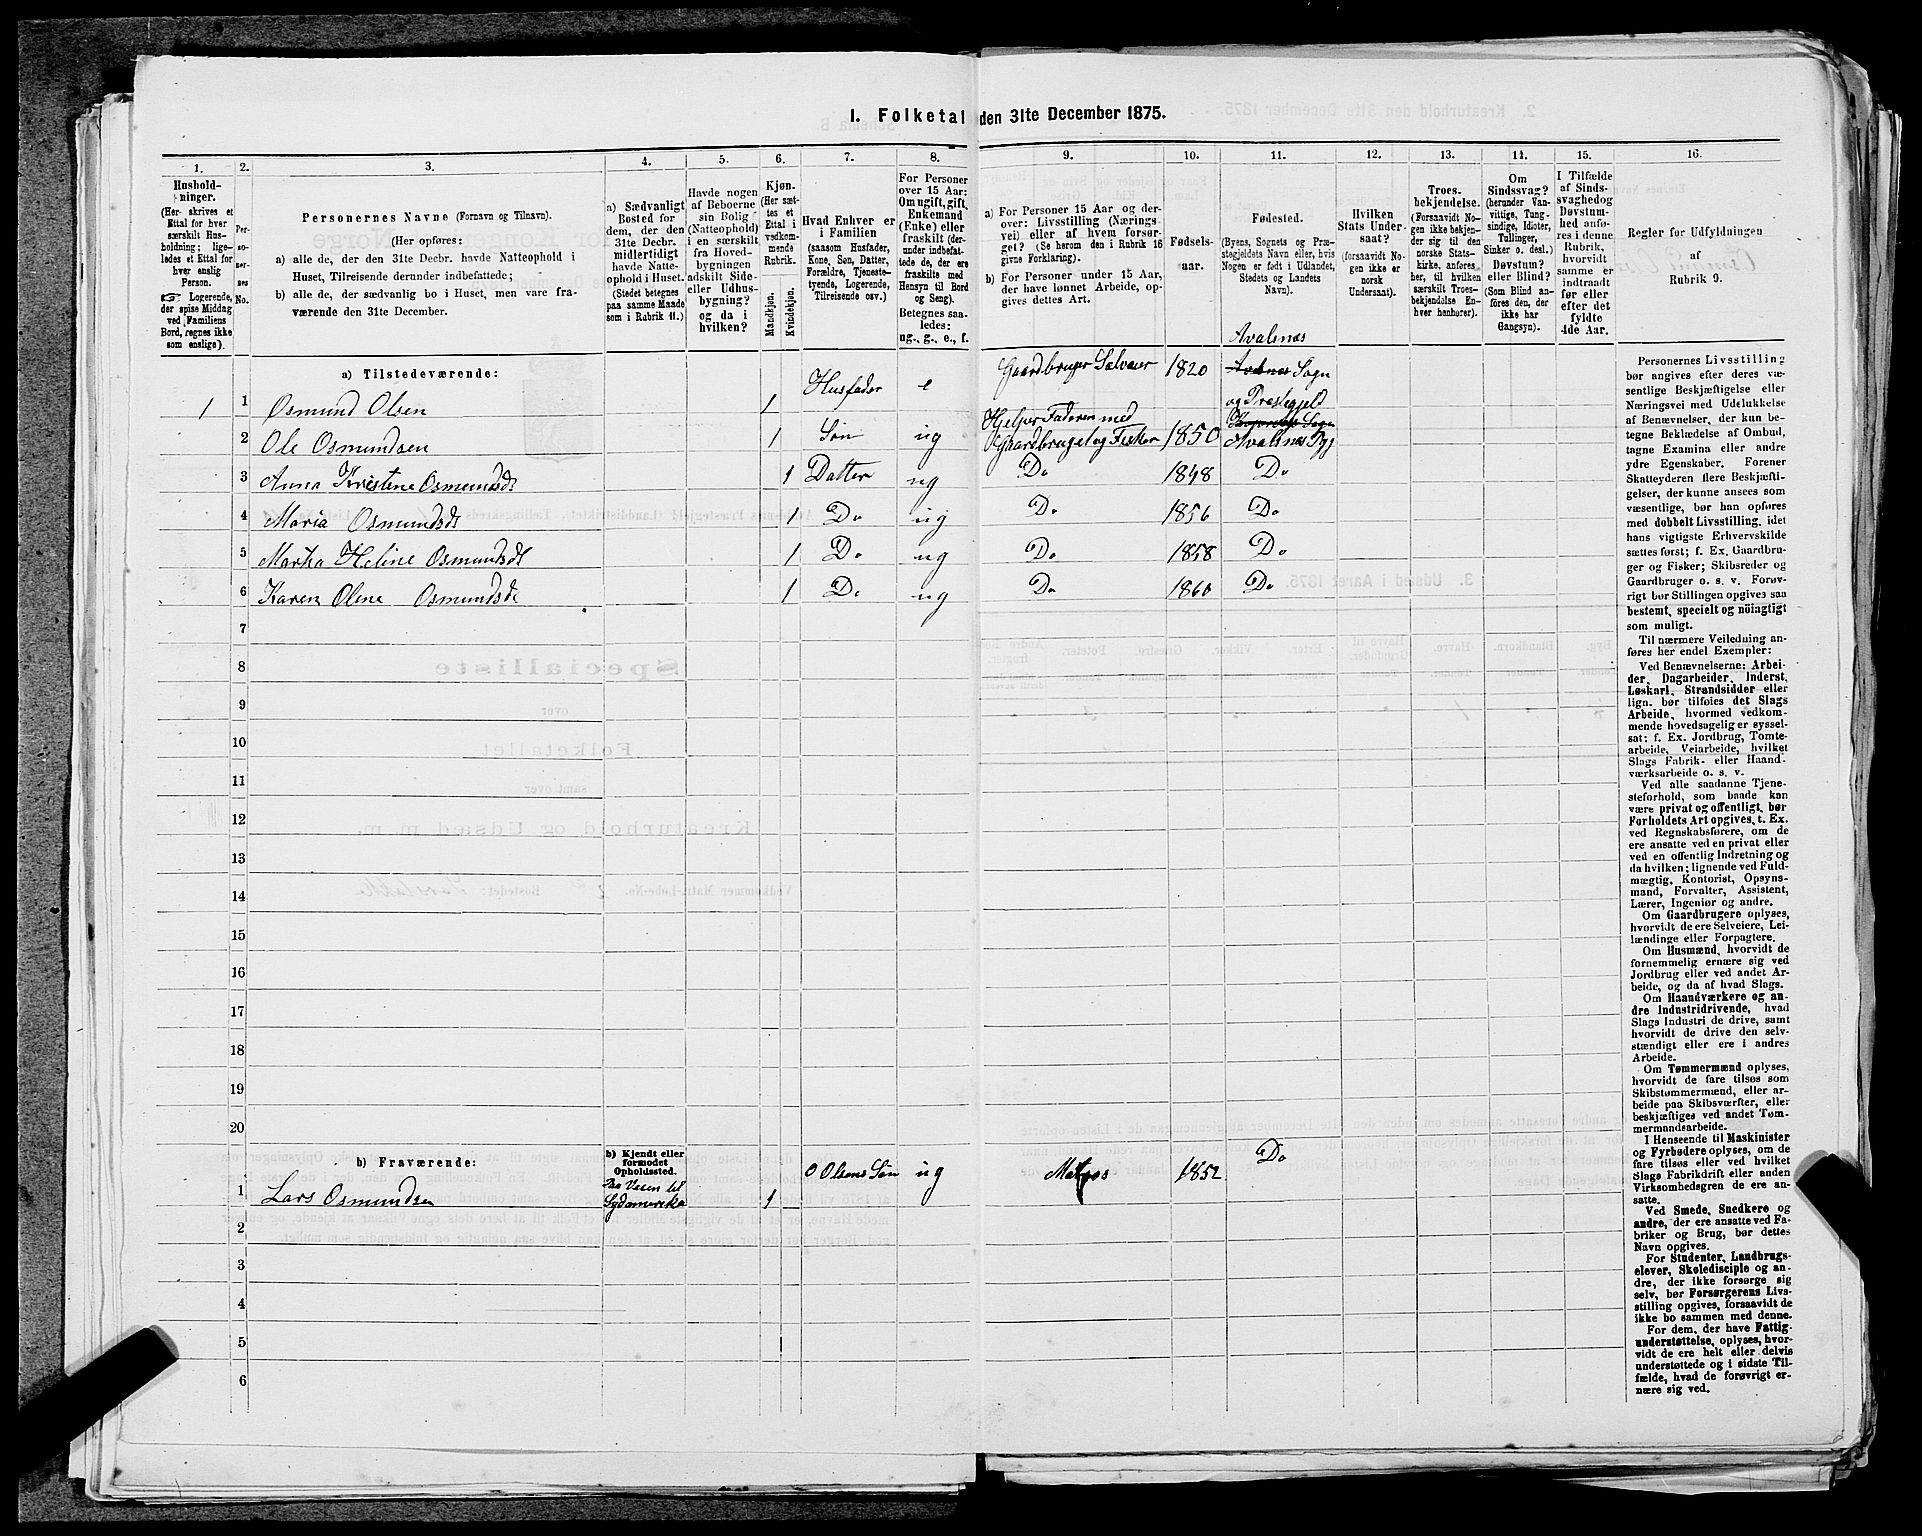 1. Folketal den 31te December 1875.
1.
Hushold-
ninger.
(Her skrives et
Ettal for hver
særskilt Hus-
holdning; lige-
ledes et Ettal for
hver enslig
Person.
☞ Logerende,
der spise Middag
ved Familiens
Bord, regnes ikke
som enslige).
2.
Per-
so-
ner-
nes
No.
3.
Personernes Navne (Fornavn og Tilnavn).
(Her opføres:
a) alle de, der den 31te Decbr. havde Natteophold i
Huset, Tilreisende derunder indbefattede;
b) alle de, der sædvanlig bo i Huset, men vare fra-
værende den 31te December.
4.
a) Sædvanligt
Bosted for
dem, der den
31te Decbr.
midlertidigt
havde Natte-
ophold i Huset.
(Stedet betegnes
paa samme Maade
som i Rubrik 11.)
5.
Havde nogen
af Beboerne
sin Bolig
(Natteophold)
i en særskilt
fra Hoved-
bygningen
adskilt Side-
eller Udhus-
bygning?
og da i
hvilken?
6.
Kjøn.
(Her sæt-
tes et
Ettal i
vedkom-
mende
Rubrik.
Mandkjøn.
Kvindekjøn.
7.
Hvad Enhver er
i Familien
(saasom Husfader,
Kone, Søn, Datter,
Forældre, Tjeneste-
tyende, Logerende,
Tilreisende osv.)
8.
For Personer
over 15 Aar:
Om ugift, gift,
Enkemand
(Enke) eller
fraskilt (der-
under indbefat-
tede de, der ere
fraskilte med
Hensyn til Bord
og Seng).
Betegnes saa-
ledes:
ug., g., e., f.
9.
a) For Personer 15 Aar og der-
over: Livsstilling (Nærings
vei) eller af hvem forsør-
get? (Se herom den i Rubrik 16
givne Forklaring).
b) For Personer under 15 Aar,
der have lønnet Arbeide, op-
gives dettes Art.
10.
Fødsels-
aar.
11.
Fødested.
(Byens, Sognets og Præ-
stegjeldets Navn eller, hvis
Nogen er født i Udlandet,
Stedets og Landets
Navn).
12.
Hvilken
Stats Under-
saat?
(forsaavidt No-
gen ikke er
norsk
Undersaat).
13.
Troes-
bekjendelse.
(Forsaavidt No-
gen ikke bekjen-
der sig til den
norske Stats-
kirke, anføres
her, til hvilken
særskilt Troes-
bekjendelse En-
hver henhører).
14.
Om
Sindssvag?
(herunder Van-
vittige, Tung-
sindige, Idioter,
Tullinger,
Sinker o. desl.)
Døvstum?
eller Blind?
(Som Blind an-
føres den, der
ikke har
Gangsyn).
15.
I Tilfælde
af Sinds-
svaghed og
Døvstum-
hed anfø-
res i denne
Rubrik,
hvorvidt
samme er
indtraadt
før eller
efter det
fyldte
4de Aar.
16.
Regler for Udfyldningen
af
Rubrik 9.
a) Tilstedeværende:
Avalsnæs
1 1 Osmund Olsen 1 Husfader e Gaardbruger Selveier 1820 Sogn
og Præstegjeld
2 Ole Osmundsen 1 Søn ug Hjelper Faderen med
Gaardbruget og Fisker 1850 Avalsnæs Pgj
3 Anna Kristine Osmundsdt 1 Datter ug Do 1848 Do
4 Maria Osmundsdt 1 Do ug Do 1856 Do
5 Martha Heline Osmundsdt 1 Do ug Do 1858 Do
6 Karen Oline Osmundsdt 1 Do ug Do 1860 Do
7
8
9
10
11
12
13
14
15
16
17
18
19
20
b) Fraværende:
b) Kjendt eller
formodet
Opholdssted.
1 Lars Osmundsen Paa Veien til
Sydamerika 1 O Olsens Søn ug Matros 1852 Do
2
3
4
5
6
Personernes Livsstilling
bør angives efter deres væ-
sentlige Beskjæftigelse eller
Næringsvei med Udelukkelse
af Benævnelser, der kun be-
tegne Beklædelse af Ombud,
tagne Examina eller andre
ydre Egenskaber. Forener
Skatteyderen flere Beskjæfti-
gelser, der kunne ansees som
væsentlige, bør han opføres
med dobbelt Livsstilling, idet
hans vigtigste Erhvervskilde
sættes først; f. Ex. Gaardbru-
ger og Fisker; Skibsreder og
Gaardbruger o. s. v. Forøv-
rigt bør Stillingen opgives saa
bestemt, specielt og nöiagtigt
som muligt.
Til nærmere Veiledning an-
føres her endel Exempler:
Ved Benævnelserne: Arbei-
der, Dagarbeider, Inderst,
Løskarl, Strandsidder eller
lign. bør tilføies det Slags
Arbeide, hvormed vedkom-
mende hovedsagelig er syssel-
sat; f. Ex. Jordbrug, Tomte-
arbeide, Veiarbeide, hvilket
Slags Fabrik- eller Haand-
værksarbeide o. s. v.
Ved alle saadanne Tjene-
steforhold, som baade kan
være privat og offentligt, bør
Forholdets Art opgives, t. Ex.
ved Regnskabsførere, om de
ere ansatte ved en privat eller
ved en offentlig Indretning og
da hvilken; lignende ved Fuld-
mægtig, Kontorist, Opsyns-
mand, Forvalter, Assistent,
Lærer, Ingeniør og andre.
Om Gaardbrugere oplyses,
hvorvidt de ere Selveiere, Lei-
lændinge eller Forpagtere.
Om Husmænd, hvorvidt de
fornemmelig ernære sig ved
Jordbrug eller ved andet Ar-
beide, og da af hvad Slags.
Om Haandværkere og an-
dre Industridrivende, hvad
Slags Industri de drive, samt
hvorvidt de drive den selv-
stændigt eller ere i andres
Arbeide.
Om Tømmermænd oplyses,
hvorvidt de fare tilsøs som
Skibstømmermænd, eller ar-
beide paa Skibsværfter, eller
beskjæftiges ved andet Tøm-
mermandsarbeide.
I Henseende til Maskinister
og Fyrbødere oplyses, om de
fare tilsøs eller ved hvilket
Slags Fabrikdrift eller anden
Virksomhedsgren de ere an-
satte.
Ved Smede, Snedkere og
andre, der ere ansatte ved Fa-
briker og Brug, bør dettes
Navn opgives.
For Studenter, Landbrugs-
elever, Skoledisciple og an-
dre, der ikke forsørge sig
selv, bør Forsørgerens Livs-
stilling opgives, forsaavidt de
ikke bo sammen med denne.
For dem, der have Fattig-
understøttelse, oplyses, hvor-
vidt de ere helt eller delvis
understøttede og i sidste Til-
fælde, hvad de forøvrigt er-
nære sig ved.